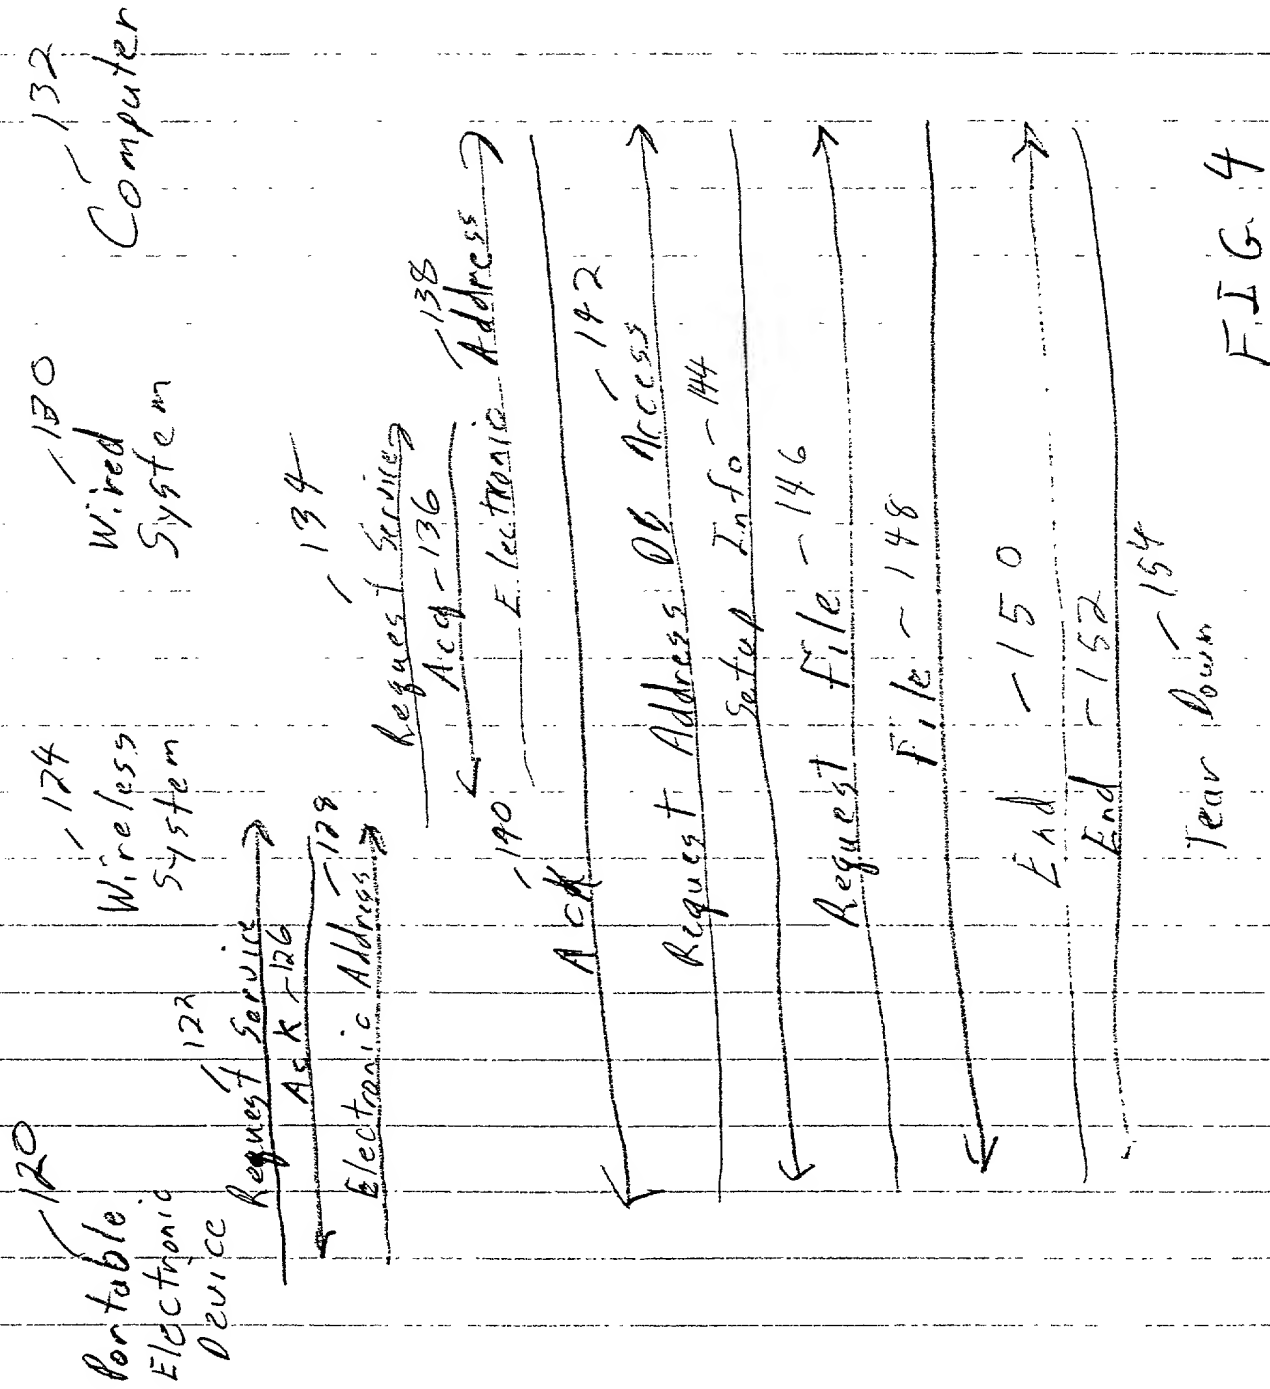 120
Portable
Electronic
Device
124
Wireless
System
130
Wired
System
132
Computer
122
Request Service
Ack - 126
128
Electronic Address
134
Request Service
Acq - 136
138
Electronic Address
140
Ack
142
Request Address DB Access
Setup Info - 144
Request File - 146
File - 148
End - 150
End - 152
Tear Down - 154
FIG. 4